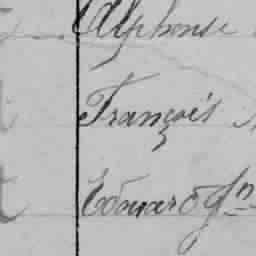 Alphonse
François
Edouard Jn